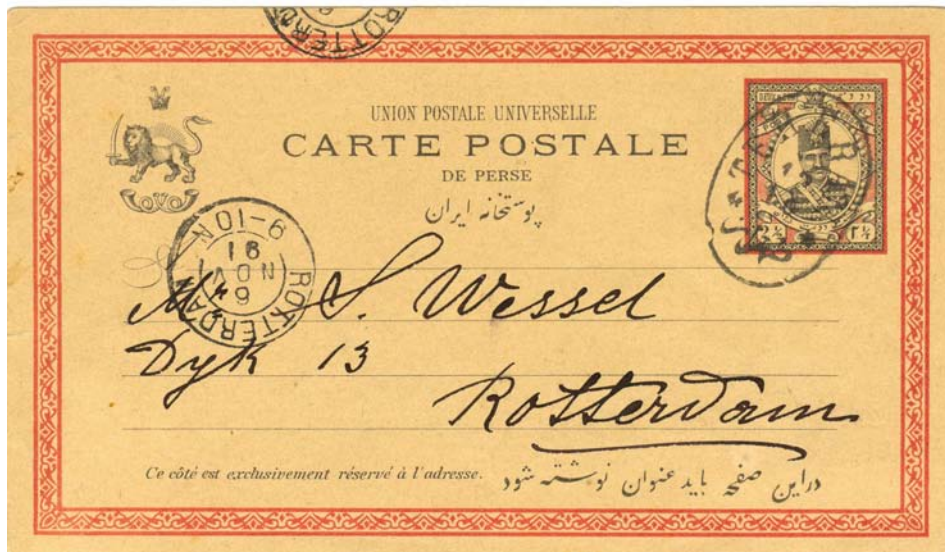 ROTTERD
UNION POSTALE UNIVERSELLE
CARTE POSTALE
DE PERSE
پوستخانه ایران
2½ ۲½
TEHERAN
9-10N
91
NOV
9
ROTTERDAM
Mr S. Wessel
Dyk 13
Rotterdam
Ce côté est exclusivement réservé à l'adresse.
دراین صفحه باید عنوان نوشته شود